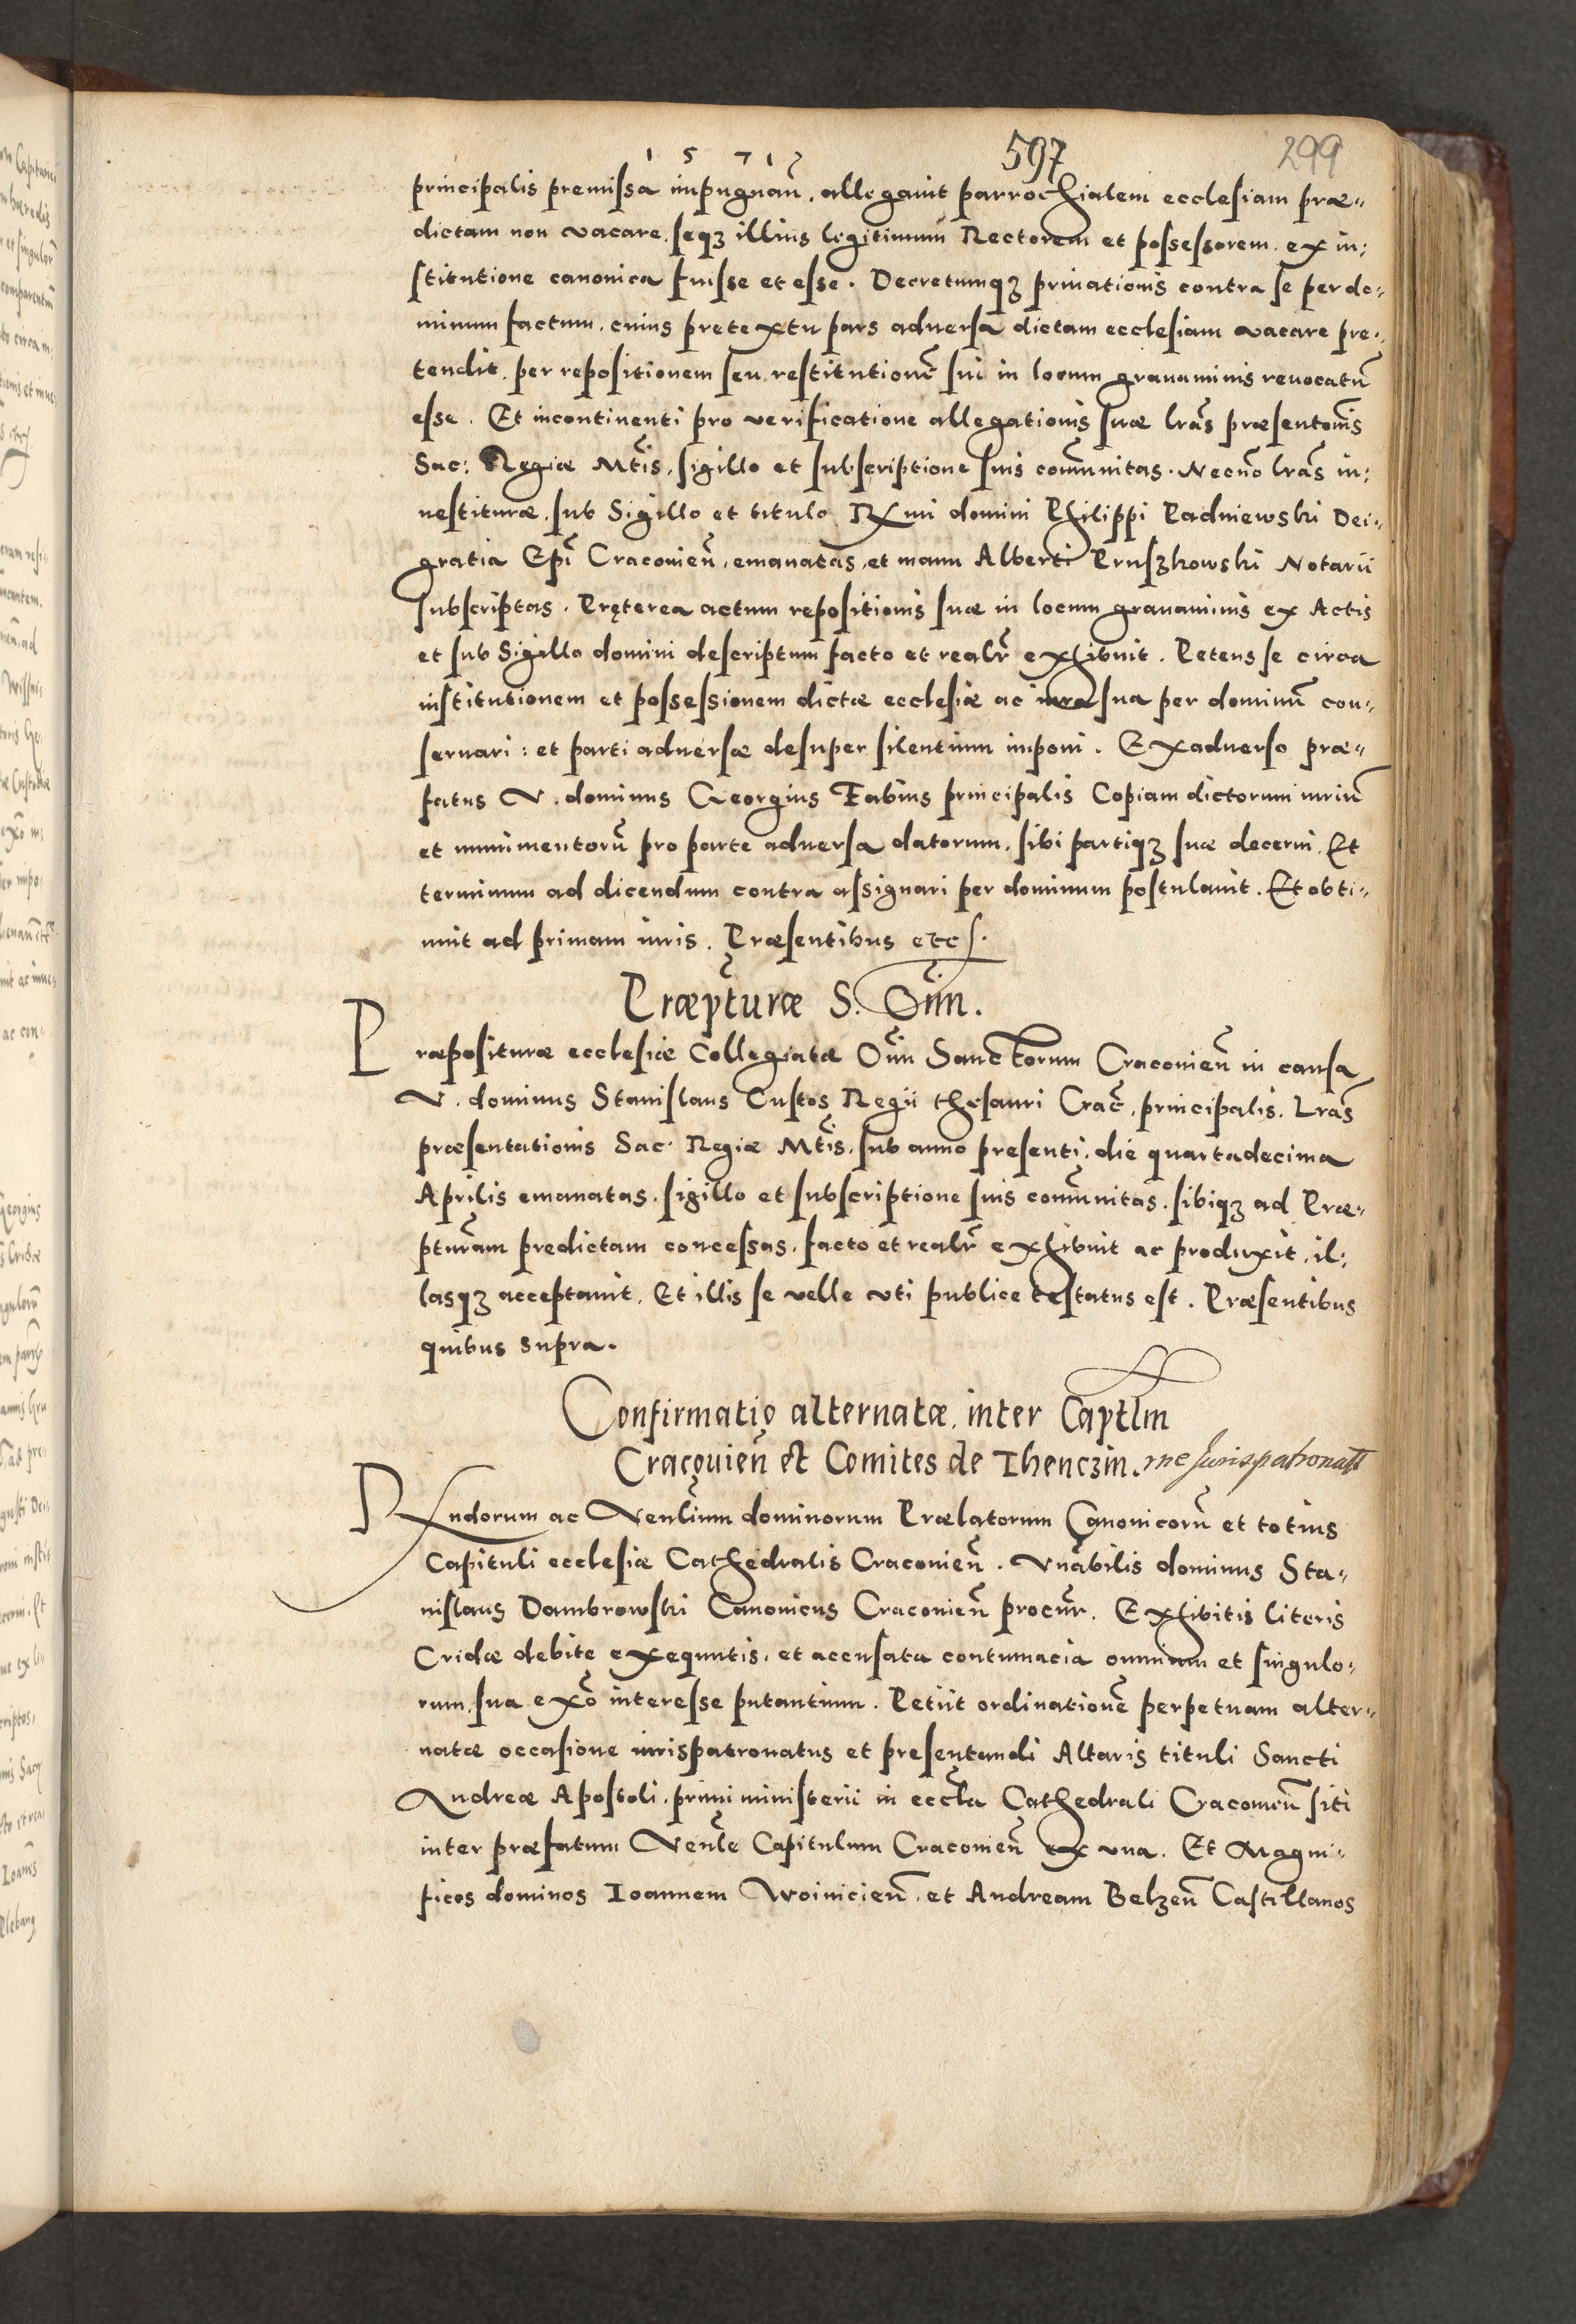 1 5 7 1
597
299
principalis premissa impugnañ, allegauit parrochialem ecclesiam præ-
dictam non vacare, seqȝ illius legitimum Rectorem et possessorem, ex in-
stitutione canonica fuisse et esse. Decretumqȝ priuationis contra se per do-
minum factum, cuius pretextu pars aduersa dictam ecclesiam vacare pre-
tendit, per repositionem seu restitutionẽ sui in locum grauaminis reuocatũ
esse. Et incontinenti pro verificatione allegationis suæ lrãs præsentõnis
Sac: Regiæ Mtis, sigillo et subscriptione suis com̃unitas. Necnõ lrãs in-
uestituræ, sub Sigillo et titulo Rx̃mi domini Philippi Padniewski Dei-
gratia Ep̃i Cracouieñ, emanatas, et manu Alberti Pruszkowski Notarii
subscriptas. Pręterea actum repositionis suæ in locum grauaminis ex Actis
et sub Sigillo domini descriptum facto et realr̃ exhibuit. Petens se circa
institutionem et possessionem dictæ ecclesiæ ac iura sua per dominũ con-
seruari: et parti aduersæ desuper silentium imponi. Exaduerso præ-
fatus V. dominus Georgius Fabius principalis Copiam dictorum iuriũ
et munimentorũ pro parte aduersa datorum, sibi partiqȝ suæ decerni. Et
terminum ad dicendum contra assignari per dominum postulauit. Et obti-
nuit ad primam iuris. Præsentibus etc.
Præp̃turæ S. Om̃m.
Præposituræ ecclesiæ Collegiatæ Om̃m Sanctorum Cracouieñ in causa
V. dominus Stanislaus Custos Regii thesauri Crac̃, principalis. Lrãs
præsentationis Sac. Regiæ Mtis, sub anno presenti, die quartadecima
Aprilis emanatas, sigillo et subscriptione suis com̃unitas, sibiqȝ ad Præ-
pturãm predictam concessas, facto et realr̃ exhibuit ac produxit, il-
lasqȝ acceptauit. Et illis se velle vti publice testatus est. Præsentibus
quibus supra.
Confirmatio alternatæ, inter Captlm
Cracouieñ et Comites de Thenczin. rne Jurispatronatt
Rx̃ndorum ac Ven̄lium dominorum Prælatorum Canonicorũ et totius
Capituli ecclesiæ Cathedralis Cracouieñ. Vnãbilis dominus Sta-
nislaus Dambrowski Canonicus Cracouieñ procur̃. Exhibitis literis
Cridæ debite exequutis, et accusata contumacia omnium et singulo-
rum, sua exõ interesse putantium. Petiit ordinationẽ perpetuam alter-
natæ occasione iurispatronatus et presentandi Altaris tituli Sancti
Andreæ Apostoli, primi ministerii in eccl̃a Cathedrali Cracouieñ siti
inter præfatum Venl̃e Capitulum Cracouieñ ex vna. Et Magni-
ficos dominos Ioannem Woinicieñ, et Andream Belzeñ Castellanos